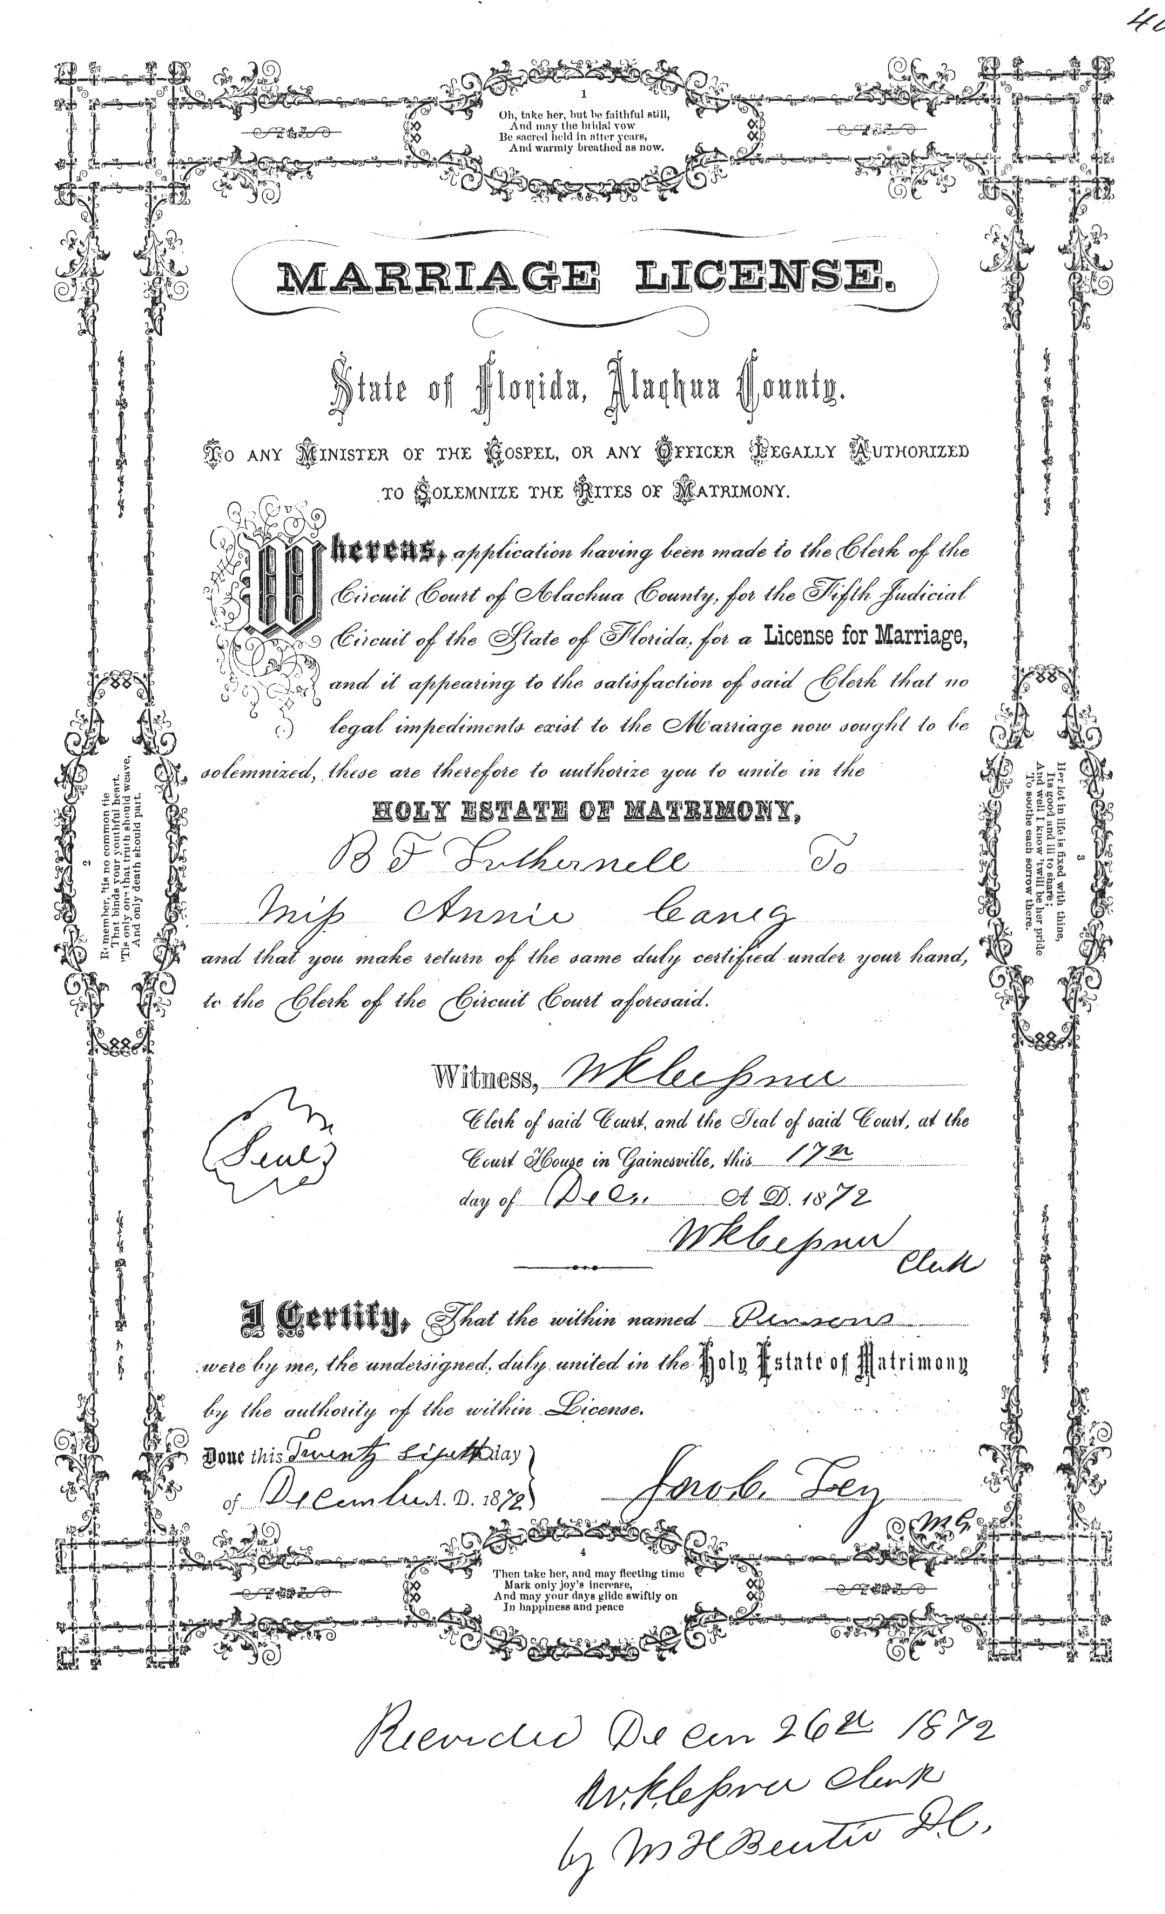 1
Oh, take her, but be faithful still,
And may the bridal vow
Be sacred held in after years,
And warmly breathed as now.
MARRIAGE LICENSE.
State of Florida, Alachua County.
TO ANY MINISTER OF THE GOSPEL, OR ANY OFFICER LEGALLY AUTHORIZED
TO SOLEMNIZE THE RITES OF MATRIMONY.
Whereas, application having been made to the Clerk of the
Circuit Court of Alachua County, for the Fifth Judicial
Circuit of the State of Florida, for a License for Marriage,
and it appearing to the satisfaction of said Clerk that no
legal impediments exist to the Marriage now sought to be
solemnized, these are therefore to authorize you to unite in the
HOLY ESTATE OF MATRIMONY,
B F To
Miss Annie
and that you make return of the same duly certified under your hand,
to the Clerk of the Circuit Court aforesaid.
Witness, W K Cessna
Clerk of said Court, and the Seal of said Court, at the
Court House in Gainesville, this 17th
day of Decr. A D. 1872
W K Cessna
Clerk
Seal
I Certify, That the within named Persons
were by me, the undersigned, duly united in the Holy Estate of Matrimony
by the authority of the within License.
Done this Twenty sixth day
of December A. D. 1872
Jno. C. Ley
M G
2
Remember, 'tis no common tie
That binds your youthful heart.
'Tis only one that truth should weave,
And only death should part.
3
Her lot in life is fixed with thine,
Its good and ill to share;
And well I know 'twill be her pride
To soothe each sorrow there.
4
Then take her, and may fleeting time
Mark only joy's increase,
And may your days glide swiftly on
In happiness and peace
Recorded Decem 26th 1872
W. K. Cessna Clerk
by M H D.C.